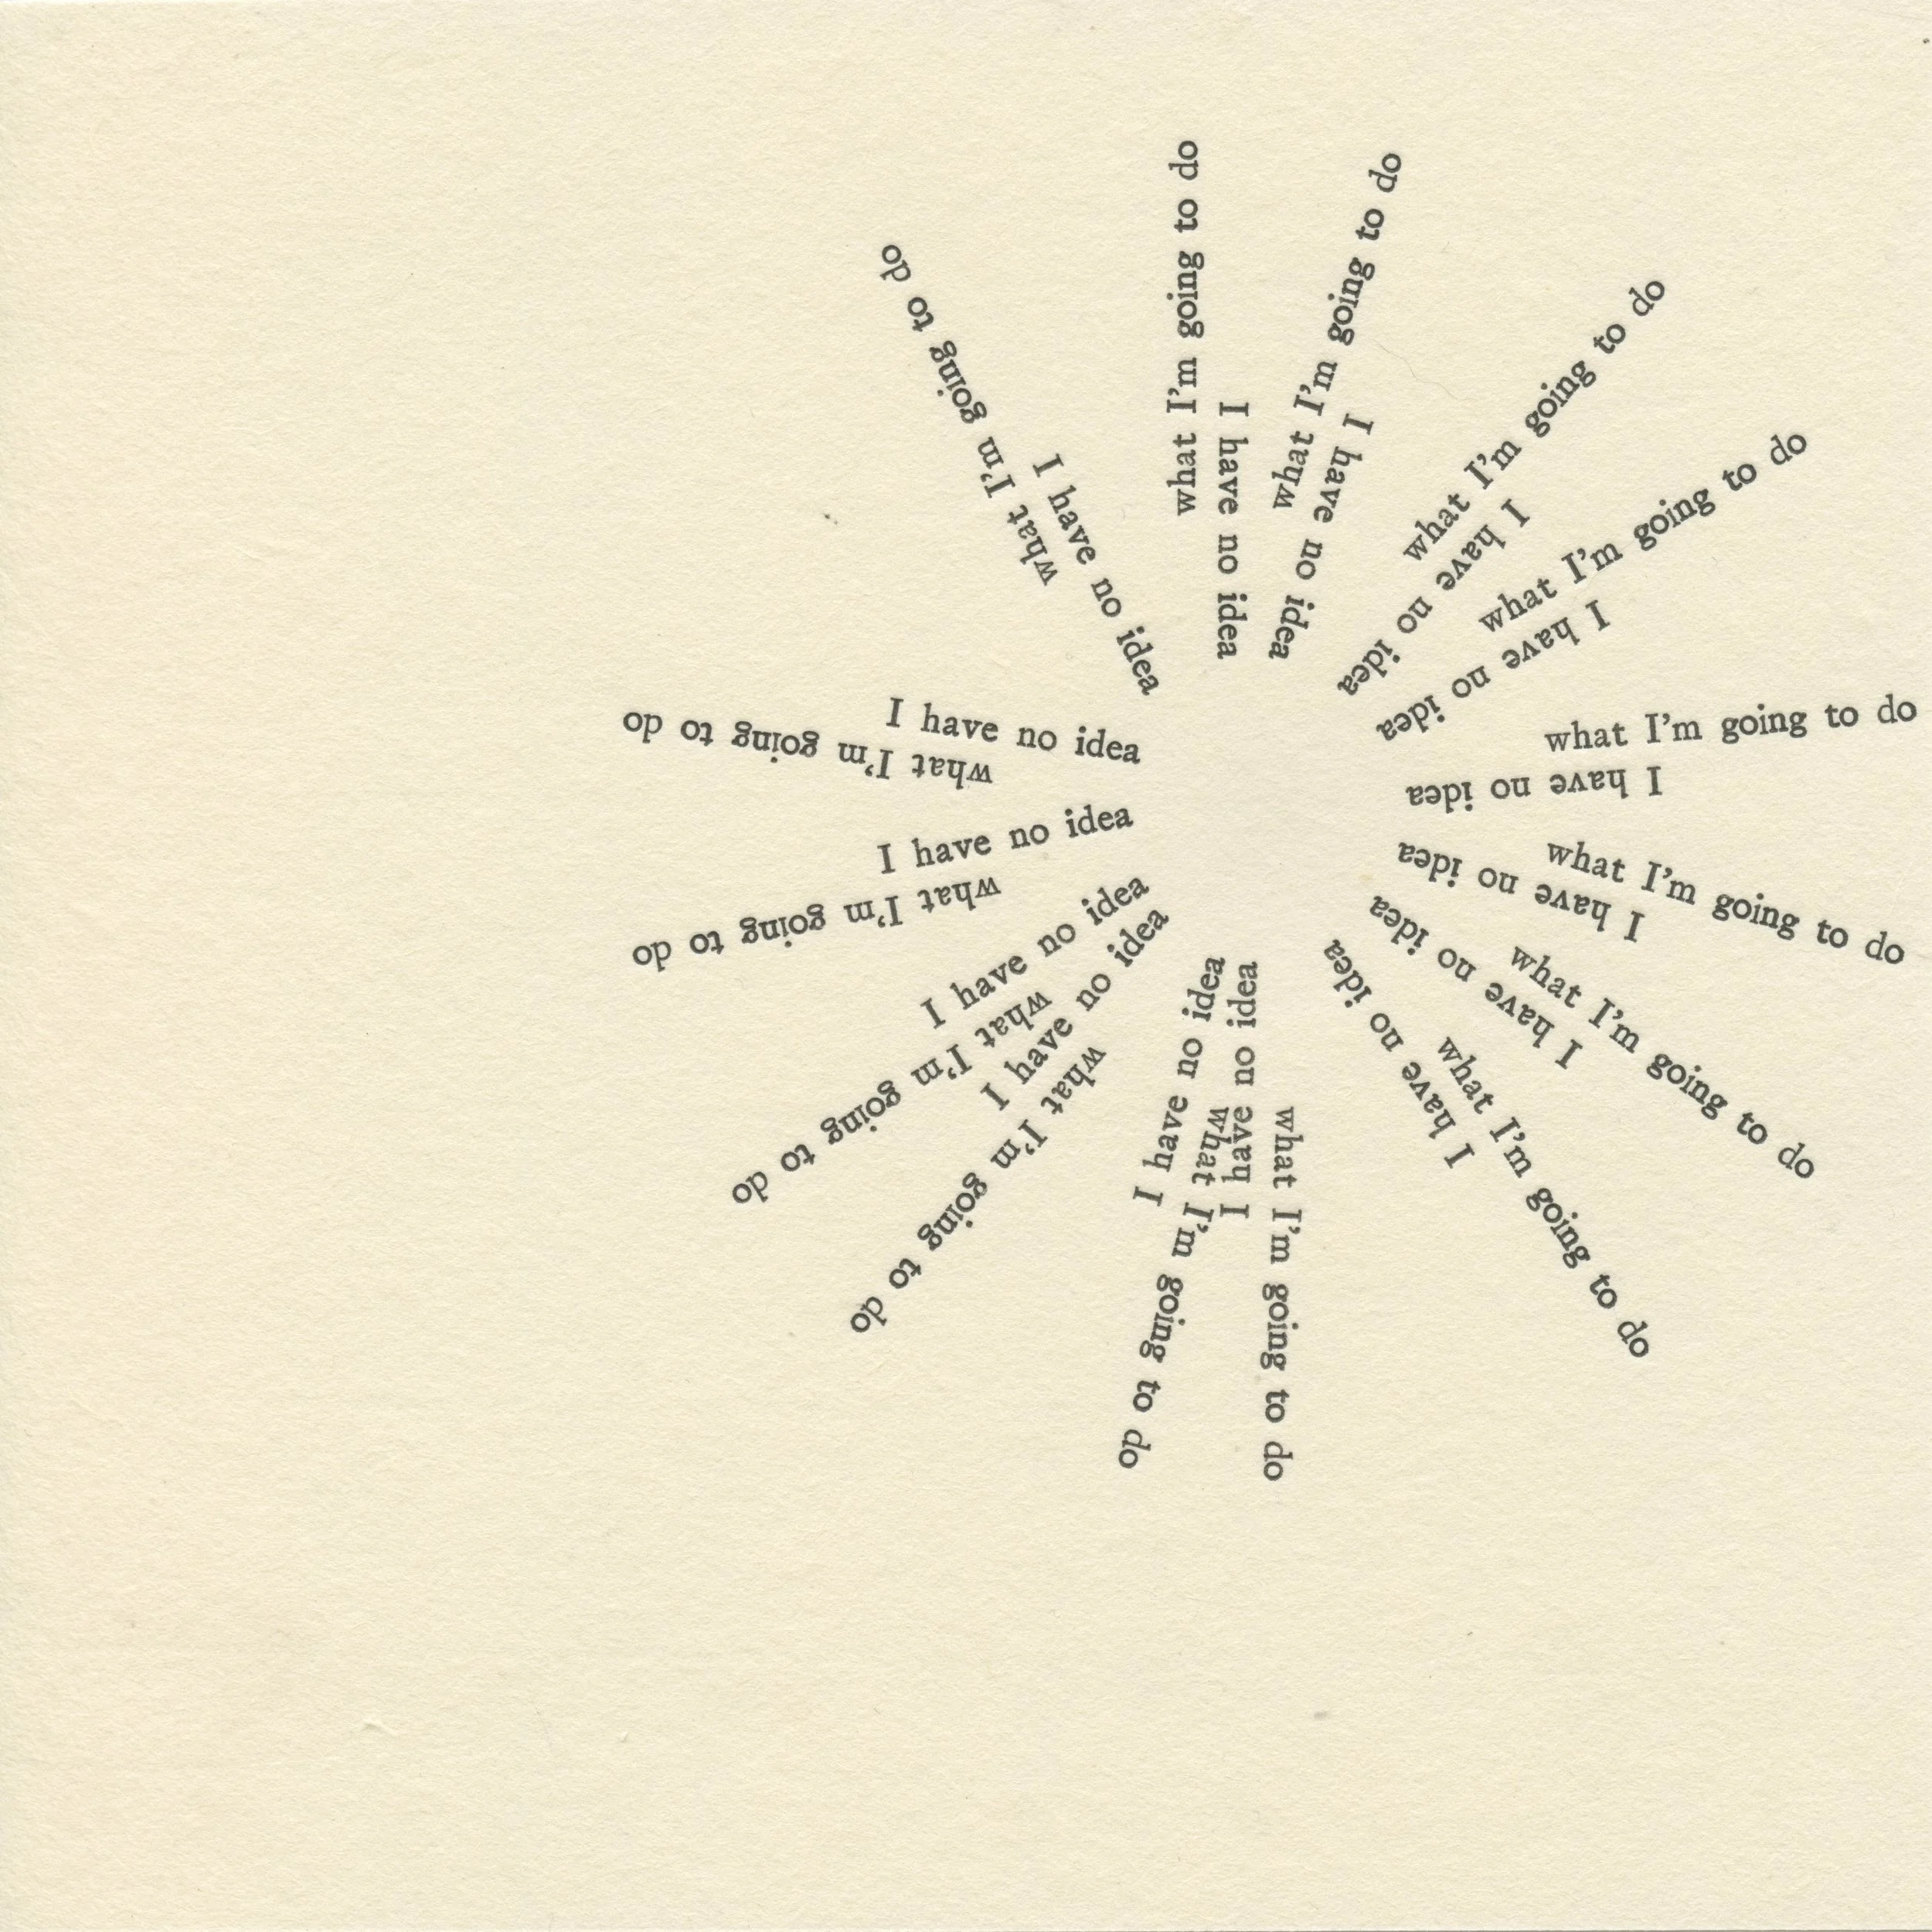 I have no idea
what I'm going to do
I have no idea
what I'm going to do
I have no idea
what I'm going to do
I have no idea
what I'm going to do
I have no idea
what I'm going to do
I have no idea
what I'm going to do
I have no idea
what I'm going to do
I have no idea
what I'm going to do
I have no idea
what I'm going to do
I have no idea
what I'm going to do
I have no idea
what I'm going to do
I have no idea
what I'm going to do
I have no idea
what I'm going to do
I have no idea
what I'm going to do
I have no idea
what I'm going to do